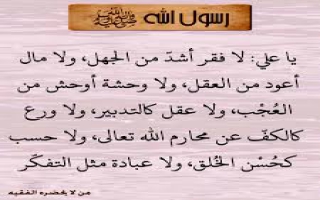 رسول الله ﷺ
يا علي: لا فقر أشدّ من الجهل، ولا مال
أعود من العقل، ولا وحشة أوحش من
العُجْب، ولا عقل كالتدبير، ولا ورع
كالكفّ عن محارم الله تعالى، ولا حسب
كحُسْن الخُلق، ولا عبادة مثل التفكّر
من لا يحضره الفقيه